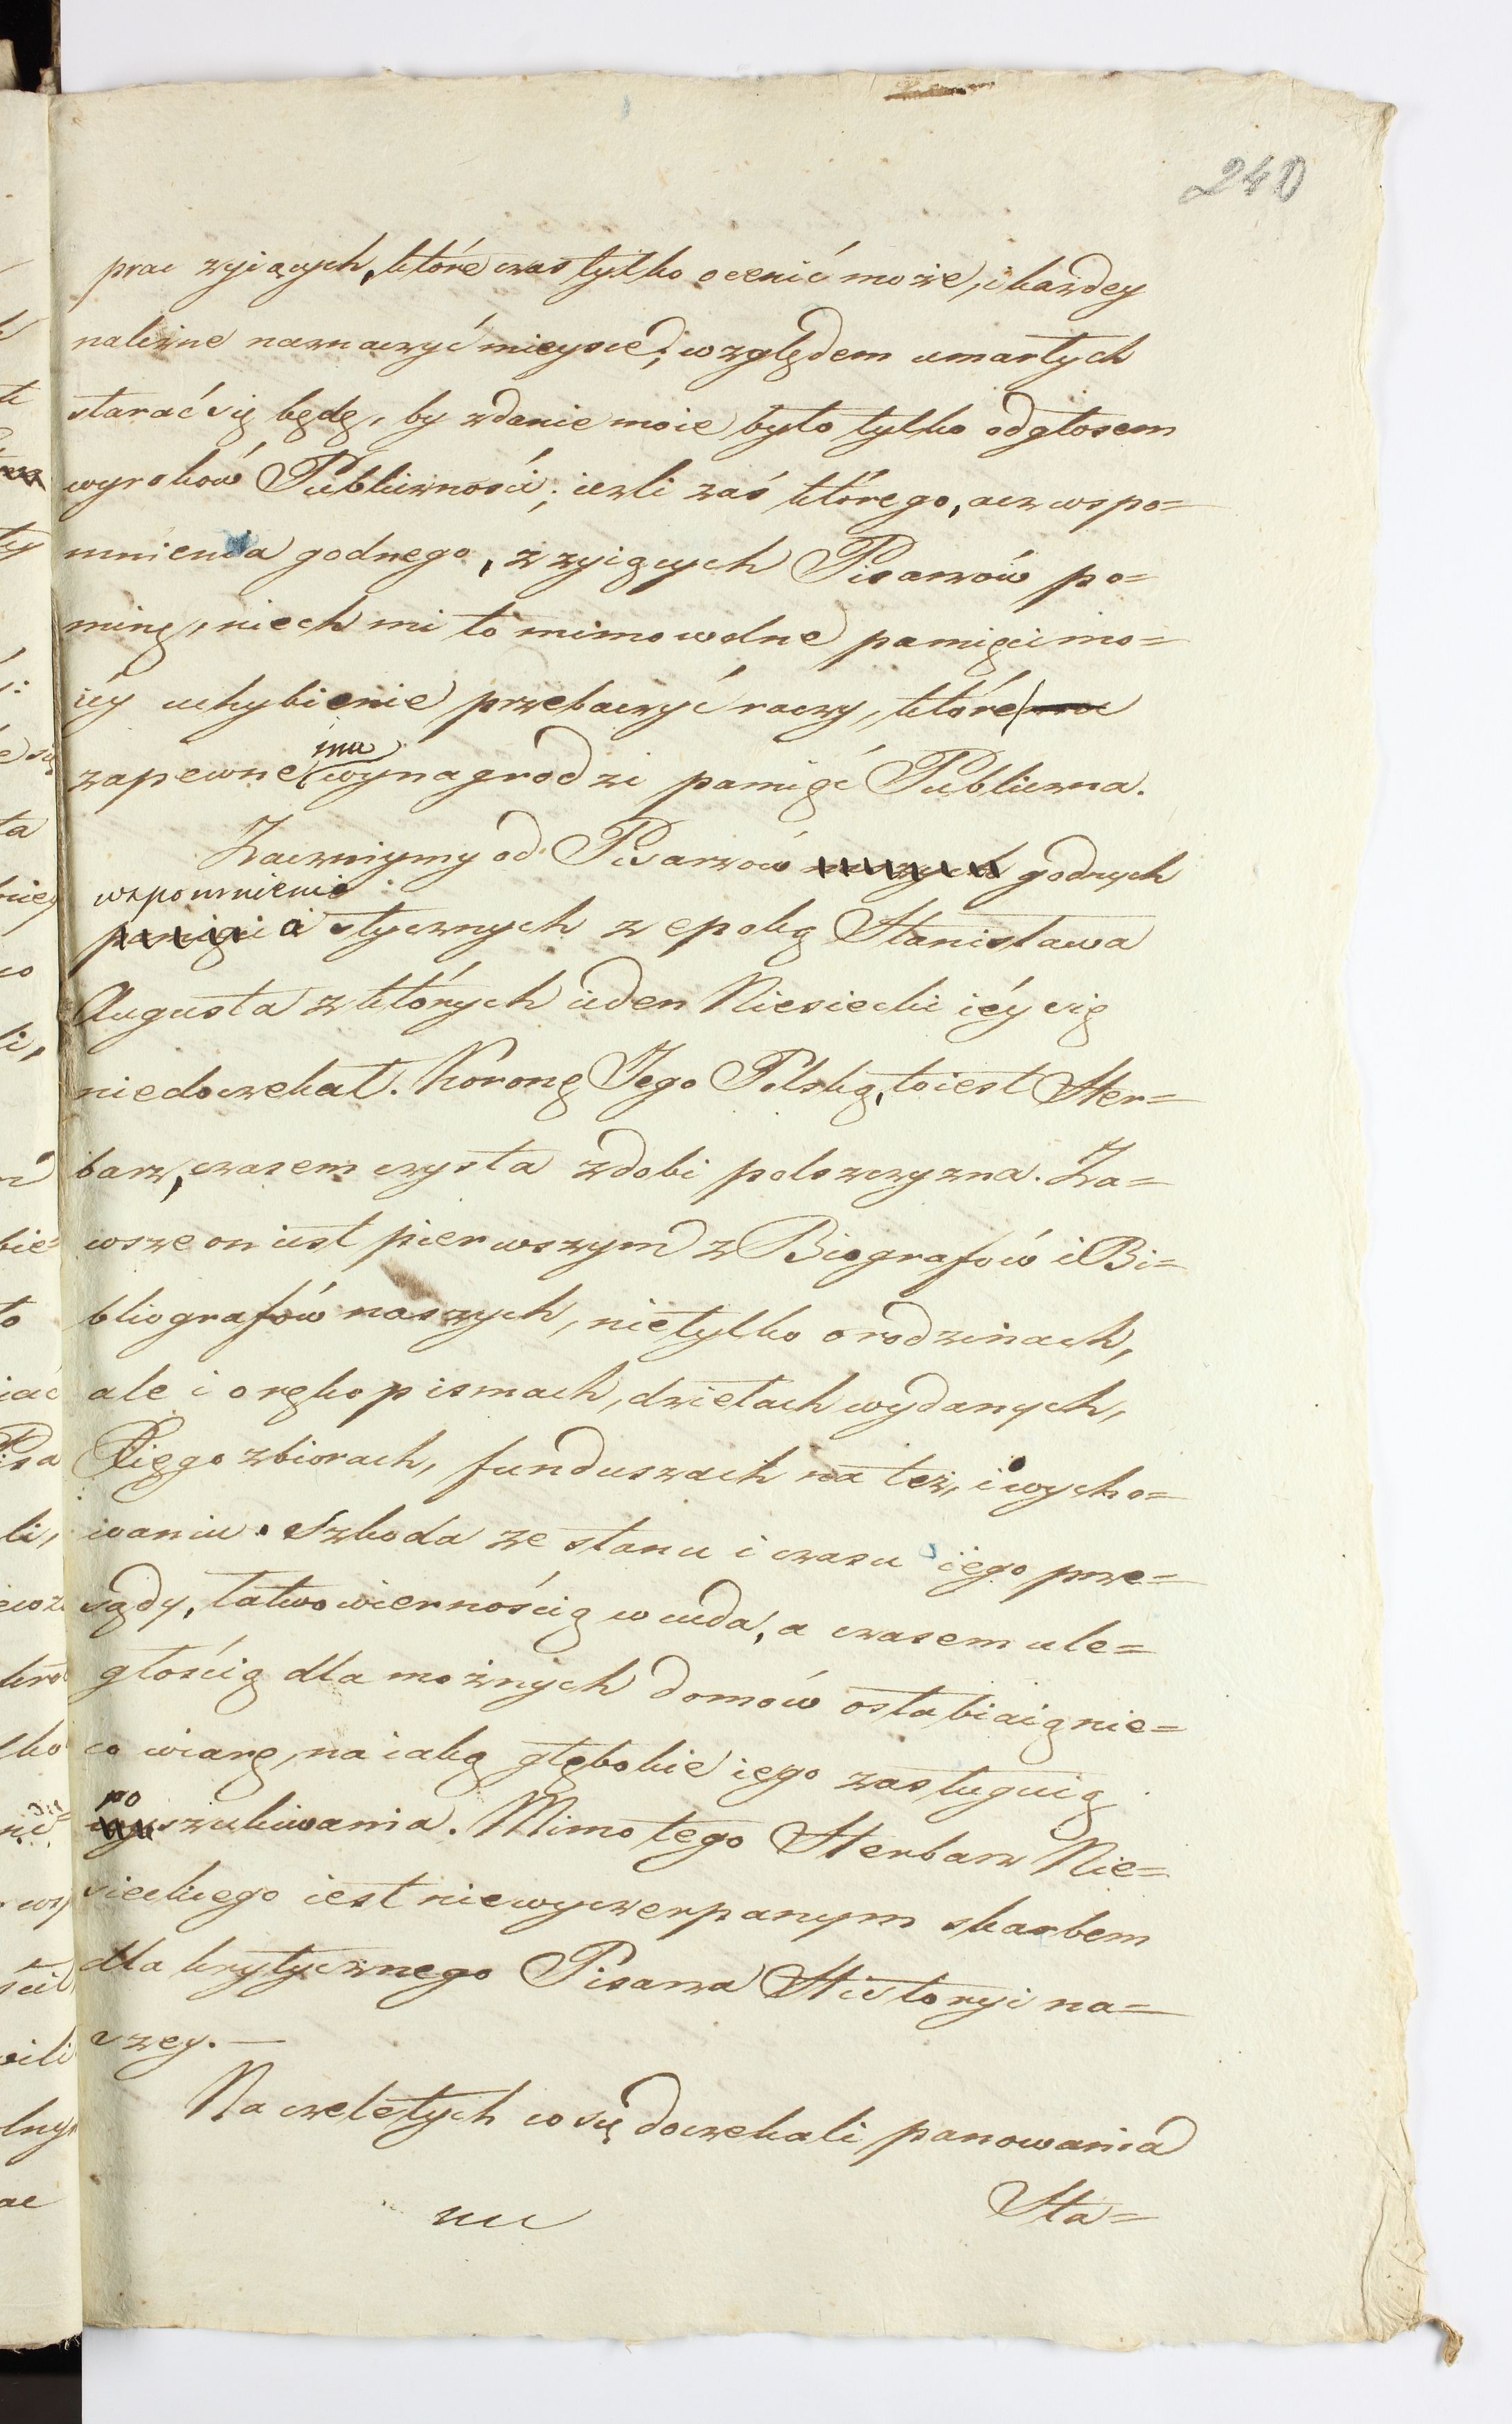 240
prac żyiących, które czas tylko ocenić może, i każdey
należne naznaczyć mieysce; względem umarłych
starać się będę, by zdanie moie było tylko odgłosem
wyroków Publiczności; ieżli zaś którego, acz wspo=
mnienia godnego, z żyiących Pisarzów po=
minę, niech mi to mimowolne pamięci mo=
iéy uchybienie przebaczyć raczy, które
imu
zapewne wynagrodzi pamięć Publiczna.
Zacznijmy od Pisarzów naszych godnych
wspomnienia
pamięci a stycznych z epoką Stanisława
Augusta z których ieden Niesiecki iéy się
niedoczekał. Koronę Jego Polską, to iest Her=
barz, czasem czysta zdobi polszczyzna. Za=
wsze on iest pierwszym z Biografów i Bi=
bliografów naszych, nie tylko o rodzinach,
ale i o rękopismach, dziełach wydanych,
Xięgozbiorach, funduszach na też, i wycho=
waniu. Szkoda że stanu i czasu iego prze=
sądy, łatwowiernością w cuda, a czasem ule=
głością dla możnych domów osłabiaią nie=
co wiarę, na iaką głębokie iego zasługuią
po
wyszukiwania. Mimo tego Herbarz Nie=
sieckiego iest niewyczerpanym skarbem
dla krytycznego Pisarza Historyi na=
szey. —
Na czele tych co się doczekali panowania
Sta=